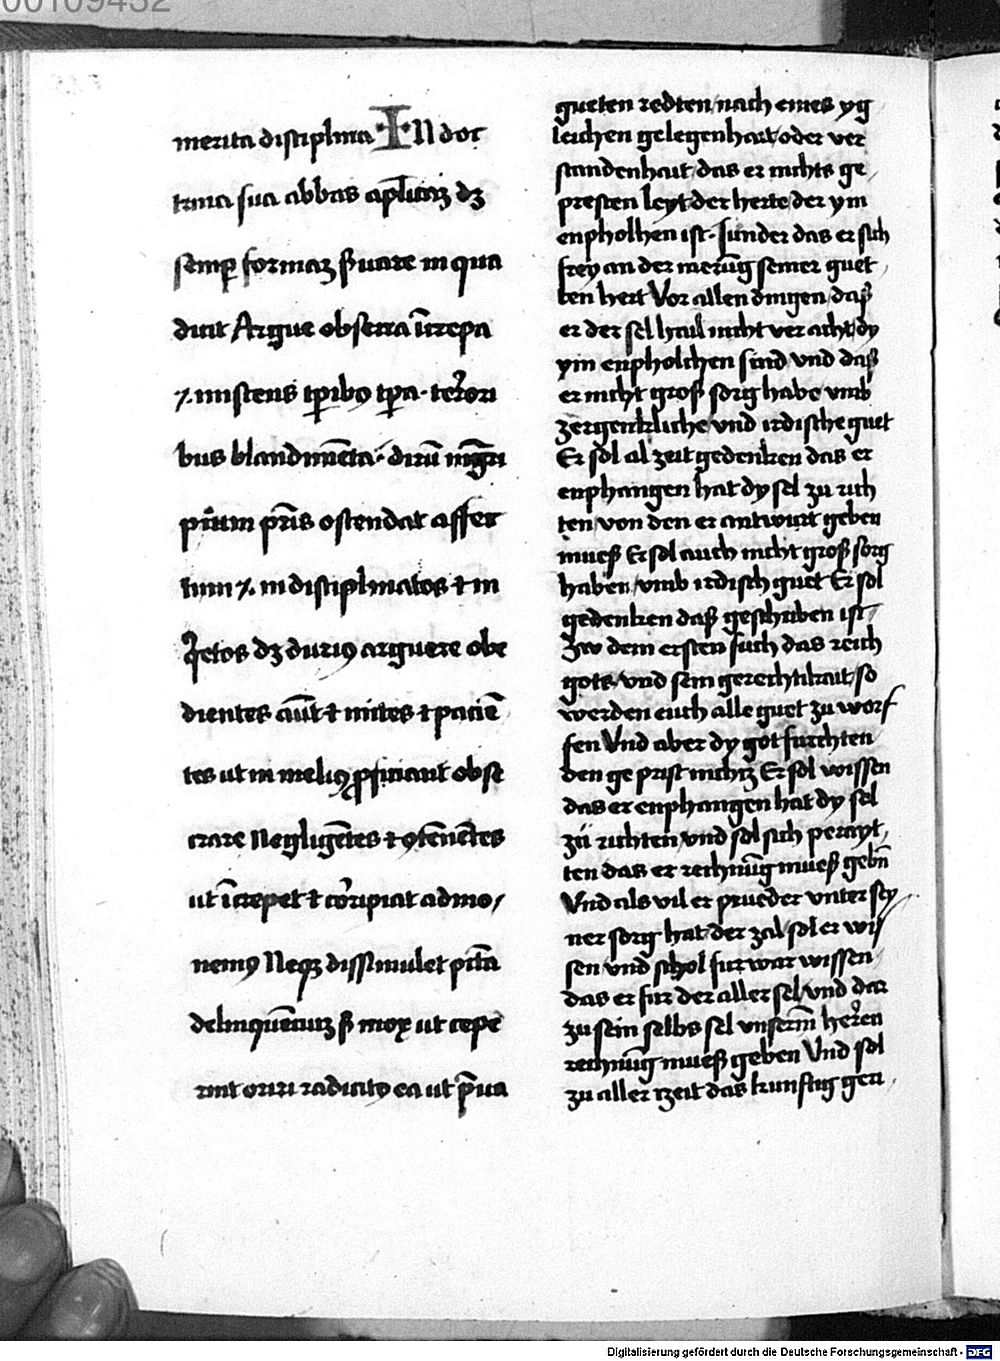 00109432
merita disciplina · IN doc
trina sua abbas ap̄licaȝ dȝ
semꝑ formaȝ ꝑuare in qua
dicit Argue obsecra īcrepa
⁊. miscens tꝑibꝰ tꝑa · teꝛ̄ori
bus blandimēta · dirū mḡri
piūm pr̄is ostendat affec
tum ⁊. indisciplinatos ⁊ in
q̄etos dȝ duriꝰ arguere obe
dientes aūt ⁊ mites ⁊ paciē
tes ut in meliꝰ ꝓficiant obse
crare Negligētes ⁊ ꝯtēnētes
ut īcrepet ⁊ coꝛ̄ipiat admo/
nemꝰ Neqȝ dissimulet pctā
delinquēciuȝ ꝑ mox ut cepe
rint oriri radicitꝰ ea ut p̄ua
gueten redten/nach eines yg
leichen gelegenhait/oder ver
standenhait/das er nichts ge/
presten leyt/der herte/der ym
enpholhen ist · sunder das er sich
frey an der merūg seiner guet/
ten hert Vor allen dingen/daß
er der sel hail nicht veracht/dy
ym enpholchen sind/vnd daß
er nicht groß sorg habe vmb
zergenkliche/vnd irdische guet
Er sol al zeit gedenken das er
enphangen hat dy sel zu rich
ten/von den er antwurt geben
mueß Er sol auch nicht groß sorg
haben/vmb irdisch guet Er sol
gedenken daß geschriben ist/
Zw dem ersten such das reich
gots/vnd sein gerechtikait/so
werden euch alle guet zu worf
fen Vnd aber dy got furchten
den ge prist nichtȝ Er sol wissen
das er enphangen hat dy sel
zu richten/vnd sol sich perayt/
ten das er rechnūg mueß gebn̄
Vnd als vil er prueder vnter sey/
ner sorg hat/der zal/sol er wis
sen vnd schol fur war wissen
das er fur der aller sel/vnd dar
zu sein selbs sel vnserm̄ heꝛ̄en
rechnūg mueß geben Vnd sol
zu aller tzeit das kunftig geri/
Digitalisierung gefördert durch die Deutsche Forschungsgemeinschaft - DFG